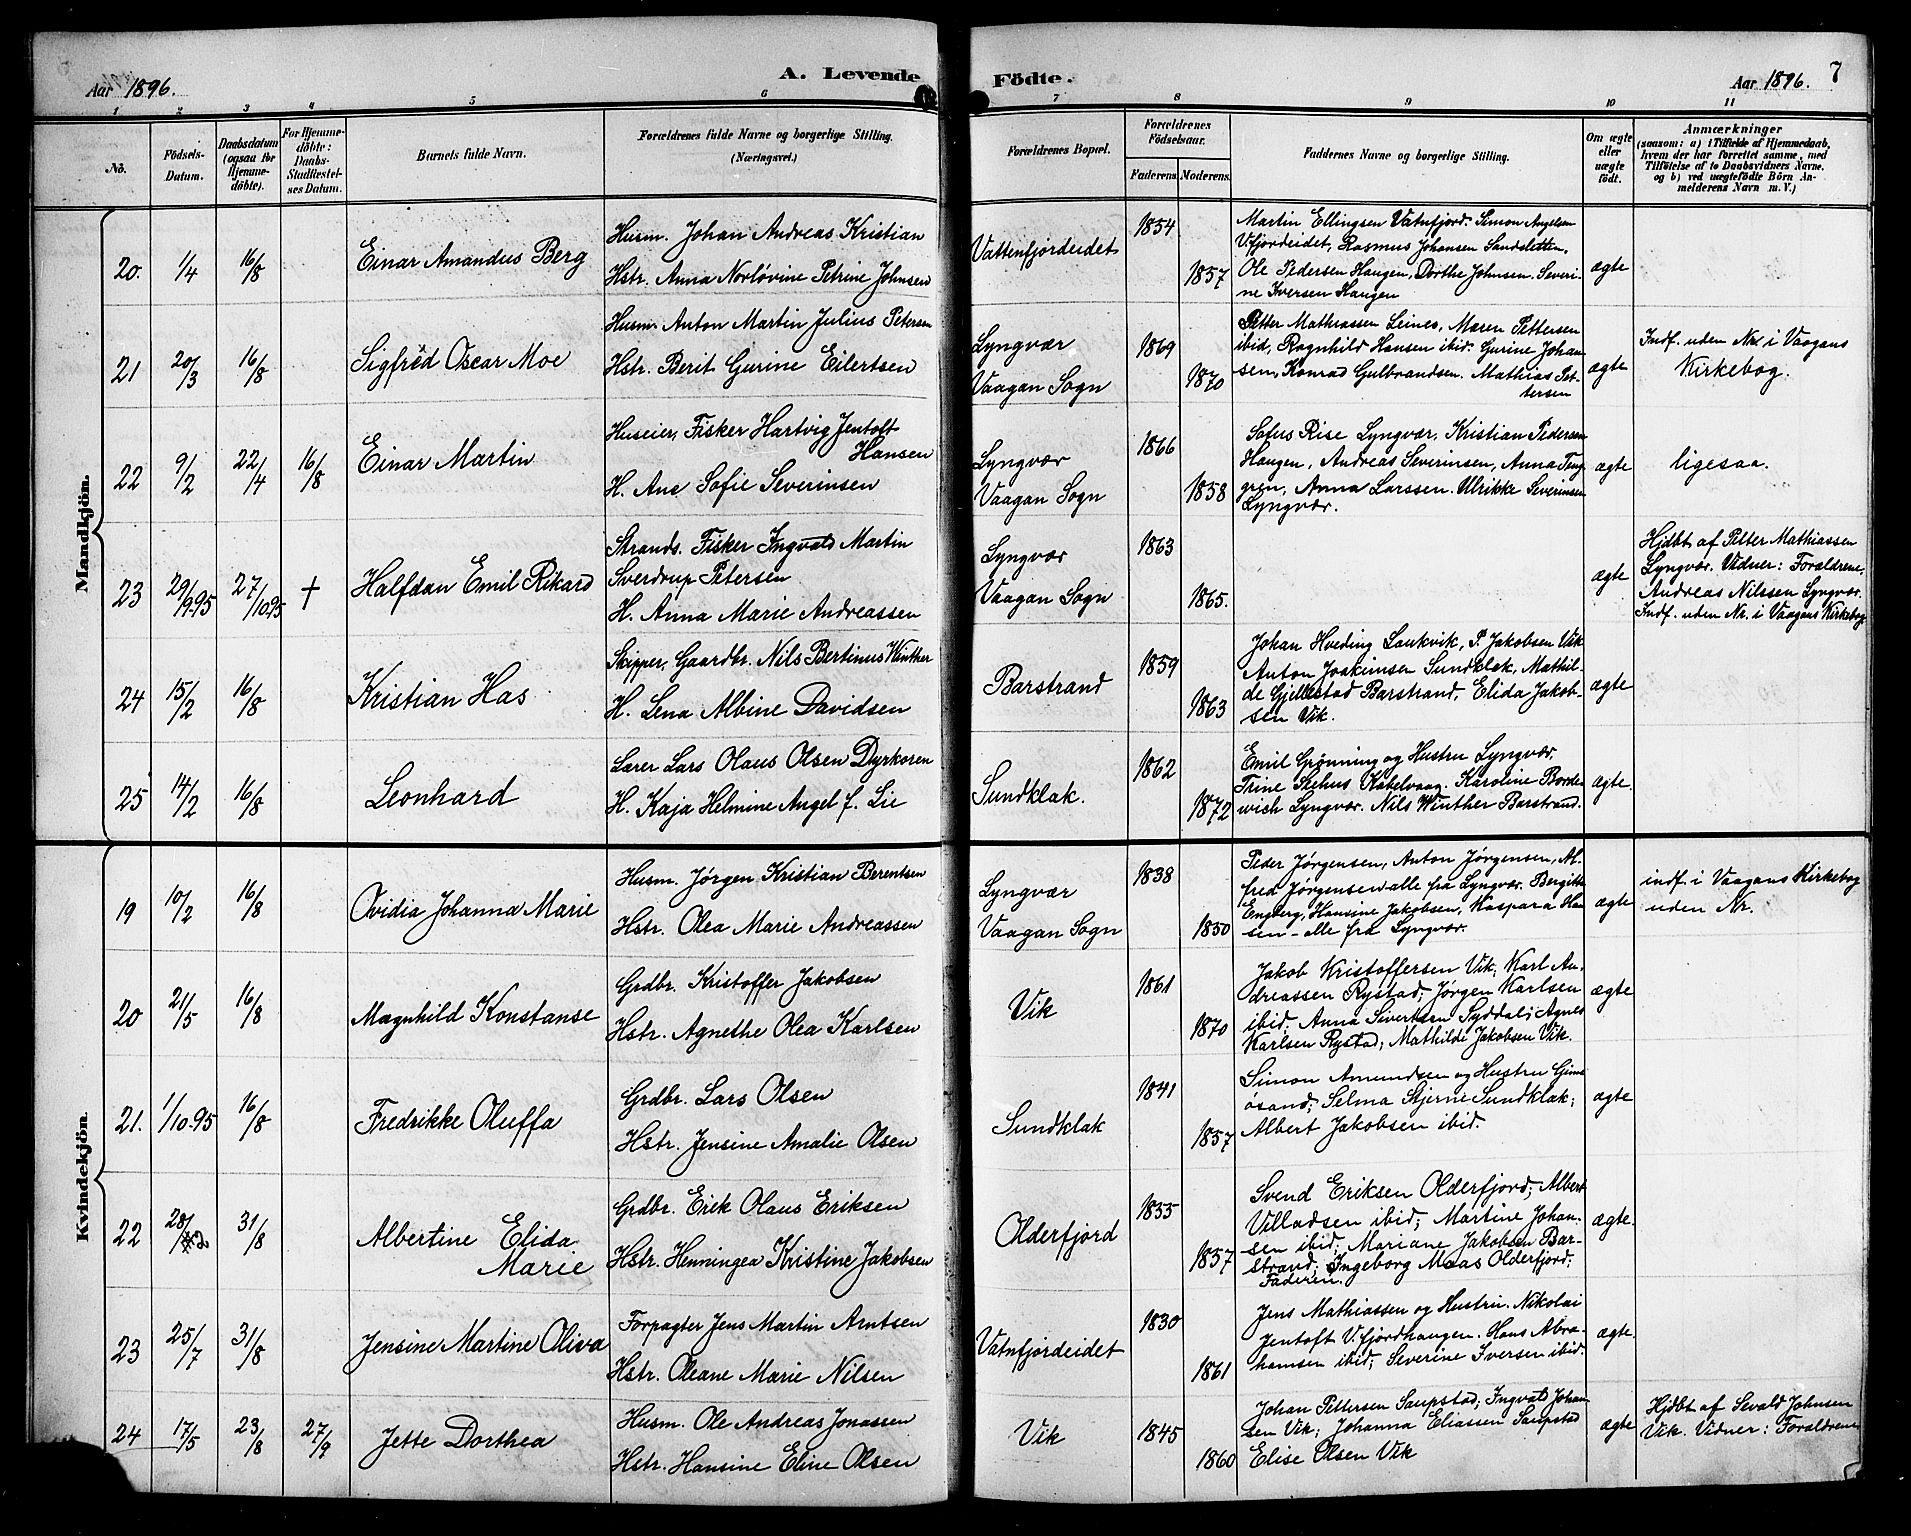 Aar 1896.
A. Levende
Födte.
Aar 1896.
7
1 2 3 4 5 6 7 8 9 10 11
No.
Födsels-
Datum.
Daabsdatum
(ogsaa for
Hjemme-
döbte).
For Hjemme-
döbte:
Daabs-
Stadfæstel-
ses Datum.
Barnets fulde Navn.
Forældrenes fulde Navne og borgerlige Stilling.
(Næringsvei.)
Forældrenes Bopæl.
Forældrenes
Födselsaar.
Faderens. Moderens.
Faddernes Navne og borgerlige Stilling.
Om ægte
eller
uægte
födt.
Anmærkninger
(saasom: a) i Tilfælde af Hjemmedaab,
hvem der har forrettet samme, med
Tilföielse af to Daabsvidners Navne,
og b) ved uægtefödte Börn An-
melderens Navn m. V.)
Mandkjön.
20. 1/4 16/8
Einar Amandus Berg
Husm. Johan Andreas Kristian
Hstr. Anna Norlovine Petrine Johnsen
Vattenfjordeidet
1854
1857
Martin Ellingsen Vatnfjord. Simon
Vfjordeidet, Rasmus Johansen Sandsletten,
Ole Pedersen Haugen, Dorthe Johnsen. Severi-
ne Iversen Haugen
ægte
21 20/3 16/8
Sigfred Oscar Moe
Husm. Anton Martin Julius Petersen
Hstr. Berit Gurine Eilertsen
Lyngvær
Vaagan Sogn
1869
1870
Petter Mathiassen Leines, Maren Pettersen
ibid, Ragnhild Hansen ibid. Gurine Johan-
sen, Konrad Gulbrandsen. Mathias Pet-
tersen
ægte
Indf. uden Nr. i Vaagans
Kirkebog.
22 9/2 22/4 16/8
Einar Martin
Huseier, Fisker Hartvig Jentoft
Hansen
H. Ane Sofie Severinsen
Lyngvær
Vaagan Sogn
1866
1858
Sofus Rise Lyngvær, Kristian Pedersen
Haugen, Andreas Severinsen, Anna Teng-
gren, Anna Larssen. Ulrikke Severinsen
Lyngvær.
ægte
ligesaa.
23 29/9.95 27/10.95 +
Halfdan Emil Rikard
Strands. Fisker Ingvald Martin
Sverdrup Petersen
H. Anna Marie Andreassen
Lyngvær
Vaagan Sogn
1863
1865.
ægte
Hjdbt af Petter Mathiassen
Lyngvær. Vidner: Forældrene,
Andreas Nilssen Lyngvær.
Indf. uden Nr. i Vaagans Kirkebog
24 15/2 16/8
Kristian Has
Skipper, Gaardbr. Nils Bertinus Winther
H. Lena Albine Davidsen
Barstrand
1859
1863
Johan Hveding Laukvik, P. Jakobsen Vik
Anton Joakimsen Sundklak, Mathil-
de Gjellestad Barstrand, Elida Jakob-
sen Vik.
ægte
25 14/2 16/8
Leonhard
Lærer Lars Olaus Olsen Dyrkoren
H. Kaja Helmine Angel f. Lie
Sundklak.
1862
1872
Emil Grønning og Hustru Lyngvær,
Trine Kabelvaag. Karoline Borde-
wich Lyngvær. Nils Winther Barstrand.
ægte.
Kvindekjön.
19 10/2 16/8
Ovidia Johanna Marie
Husm. Jørgen Kristian Berentsen
Hstr. Olea Marie Andreassen
Lyngvær
Vaagan Sogn
1838
1850
Peder Jørgensen, Anton Jørgensen, Al-
fred Jørgensen alle fra Lyngvær. Bergitte
Engberg, Hansine Jakobsen, Kaspara Han
sen - alle fra Lyngvær.
ægte
indf. i Vaagans Kirkebog
uden Nr.
20 21/5 16/8
Magnhild Konstanse
Grdbr. Kristoffer Jakobsen
Hstr. Agnethe Olea Karlsen
Vik
1861
1870
Jakob Kristoffersen Vik; Karl An-
dreassen Rystad; Jørgen Karlsen
ibid. Anna Sivertsen Syddal; Agnes
Karlsen Rystad; Mathilde Jakobsen Vik.
ægte
21. 1/10.95 16/8
Fredrikke Oluffa
Grdbr. Lars Olsen
Hstr. Jensine Amalie Olsen
Sundklak
1841
1857
Simon Amundsen og Hustru Gims-
øsand; Selma Stjerne Sundklak;
Albert Jakobsen ibid.
ægte
22 28/2 31/8
Albertine Elida
Marie
Grdbr. Erik Olaus Eriksen
Hstr. Henningea Kristine Jakobsen
Olderfjord
1855
1857
Svend Eriksen Olderfjord; Albert
Villadsen ibid; Martine Johan-
sen ibid; Mariane Jakobsen Bar-
strand; Ingeborg Maas Olderfjord;
Faderen.
ægte.
23 25/7 31/8
Jensine Martine Oliva
Forpagter Jens Martin Arntsen
Hstr. Oleane Marie Nilsen
Vatnfjordeidet
1830
1861
Jens Mathiassen og Hustru. Nikolai
Jentoft Vfjordhaugen. Hans Abra-
hamsen ibid; Severine Iversen ibid.
ægte
24 17/5 23/8 27/9
Jette Dorthea
Husm. Ole Andreas Jonassen
Hstr. Hansine Eline Olsen
Vik
1845
1860
Johan Pettersen Saupstad; Ingvald Johan
sen Vik; Johanna Eliassen Saupstad
Elise Olsen Vik
ægte
Hjdbt af Sevald Johnsen
Vik. Vidner: Forældrene